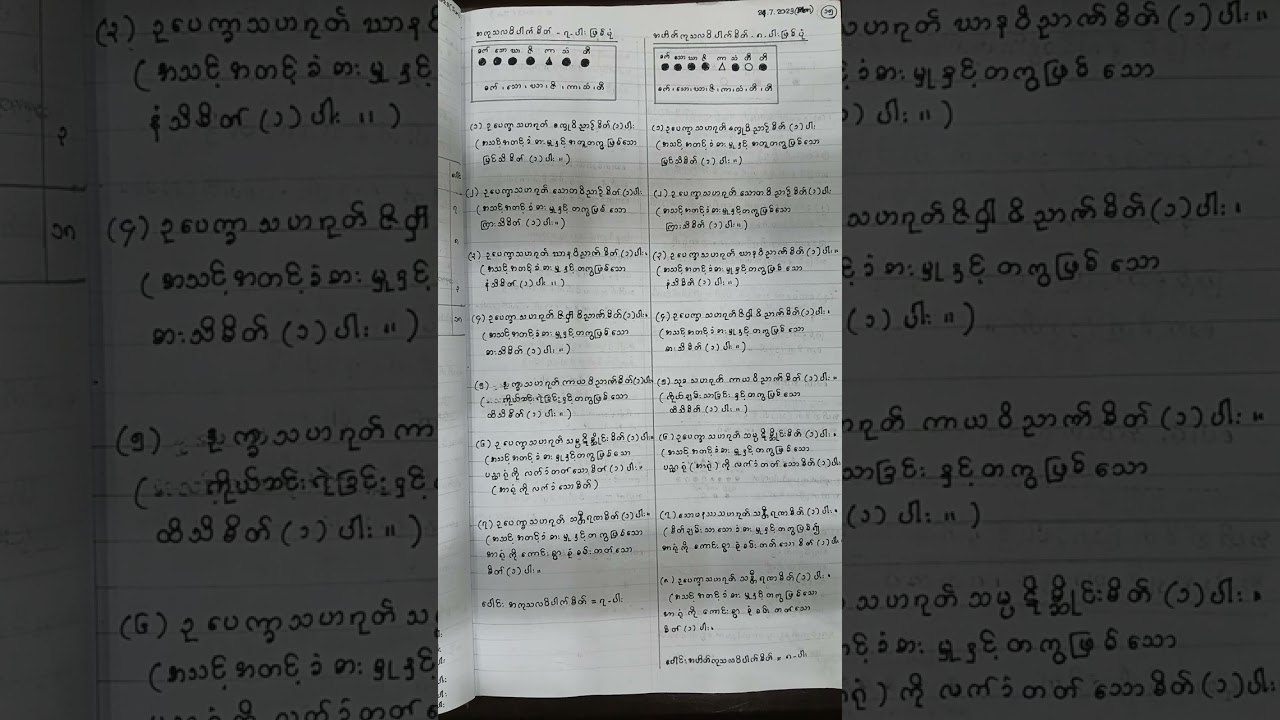 24.7.2023
အကုသလဝိပါက်စိတ် - ၇ - ပါး ဖြစ်ပုံ
စက် သော ဃာ ဇိ ကာ သံ တီ
စက် ၊ သော ၊ ဃာ ၊ ဇိ ၊ ကာ ၊ သံ ၊ တီ
(၁) ဥပေက္ခာသဟဂုတ် စက္ခုဝိညာဉ်စိတ် (၁) ပါး
(အသင့်အတင့်ခံစားမှုနှင့် အတူတကွဖြစ်သော
မြင်သိစိတ် (၁) ပါး ။)
(၂) ဥပေက္ခာသဟဂုတ် သောတဝိညာဉ်စိတ် (၁) ပါး
(အသင့်အတင့်ခံစားမှုနှင့်တကွဖြစ်သော
ကြားသိစိတ် (၁) ပါး ။)
(၃) ဥပေက္ခာသဟဂုတ် ဃာနဝိညာဏ်စိတ် (၁) ပါး
(အသင့်အတင့်ခံစားမှုနှင့်တကွဖြစ်သော
နံသိစိတ် (၁) ပါး ။)
(၄) ဥပေက္ခာသဟဂုတ် ဇိဝှါဝိညာဏ်စိတ် (၁) ပါး
(အသင့်အတင့်ခံစားမှုနှင့်တကွဖြစ်သော
စားသိစိတ် (၁) ပါး ။)
(၅) ဒုက္ခသဟဂုတ် ကာယဝိညာဏ်စိတ် (၁) ပါး
ကိုယ်ဆင်းရဲခြင်းနှင့်တကွဖြစ်သော
ထိသိစိတ် (၁) ပါး ။)
(၆) ဥပေက္ခာသဟဂုတ် သမ္ပဋိစ္ဆိုင်းစိတ် (၁) ပါး ။
(အသင့်အတင့်ခံစားမှုနှင့်တကွဖြစ်သော
ပဉ္စာရုံကို လက်ခံတတ်သောစိတ် (၁) ပါး ။
(အာရုံကို လက်ခံသောစိတ်)
(၇) ဥပေက္ခာသဟဂုတ် သန္တီရဏစိတ် (၁) ပါး ။
(အသင့်အတင့်ခံစားမှုနှင့်တကွဖြစ်သော
အာရုံကို ကောင်းစွာ စုံစမ်းတတ်သော
စိတ် (၁) ပါး ။
ပေါင်း အကုသလဝိပါက်စိတ် = ၇ - ပါး
အဟိတ်ကုသလဝိပါက်စိတ် - ၈ - ပါး ဖြစ်ပုံ
စက် သော ဃာ ဇိ ကာ သံ တီ တီ
စက် ၊ သော ၊ ဃာ ၊ ဇိ ၊ ကာ ၊ သံ ၊ တီ ၊ တီ
(၁) ဥပေက္ခာသဟဂုတ် စက္ခုဝိညာဉ်စိတ် (၁) ပါး
(အသင့်အတင့်ခံစားမှုနှင့် အတူတကွဖြစ်သော
မြင်သိစိတ် (၁) ပါး ။)
(၂) ဥပေက္ခာသဟဂုတ် သောတဝိညာဉ်စိတ် (၁) ပါး
(အသင့်အတင့်ခံစားမှုနှင့်တကွဖြစ်သော
ကြားသိစိတ် (၁) ပါး ။)
(၃) ဥပေက္ခာသဟဂုတ် ဃာနဝိညာဏ်စိတ် (၁) ပါး ။
(အသင့်အတင့်ခံစားမှုနှင့်တကွဖြစ်သော
နံသိစိတ် (၁) ပါး ။)
(၄) ဥပေက္ခာသဟဂုတ် ဇိဝှါဝိညာဏ်စိတ် (၁) ပါး ၊
(အသင့်အတင့်ခံစားမှုနှင့်တကွဖြစ်သော
စားသိစိတ် (၁) ပါး ။)
(၅) သုခသဟဂုတ် ကာယဝိညာဏ်စိတ် (၁) ပါး ။
(ကိုယ်ချမ်းသာခြင်းနှင့်တကွဖြစ်သော
ထိသိစိတ် (၁) ပါး ။)
(၆) ဥပေက္ခာသဟဂုတ် သမ္ပဋိစ္ဆိုင်းစိတ် (၁) ပါး ။
(အသင့်အတင့်ခံစားမှုနှင့်တကွဖြစ်သော
ပဉ္စာရုံ (အာရုံ) ကို လက်ခံတတ်သောစိတ် (၁) ပါး
(၇) သောမနဿသဟဂုတ် သန္တီရဏစိတ် (၁) ပါး ။
(စိတ်ချမ်းသာသောခံစားမှုနှင့်တကွဖြစ်၍
အာရုံကို ကောင်းစွာ စုံစမ်းတတ်သောစိတ် (၁) ပါး
(၈) ဥပေက္ခာသဟဂုတ် သန္တီရဏစိတ် (၁) ပါး ။
(အသင့်အတင့်ခံစားမှုနှင့်တကွဖြစ်သော
အာရုံကို ကောင်းစွာ စုံစမ်းတတ်သော
စိတ် (၁) ပါး ။
ပေါင်း အဟိတ်ကုသလဝိပါက်စိတ် = ၈ - ပါး